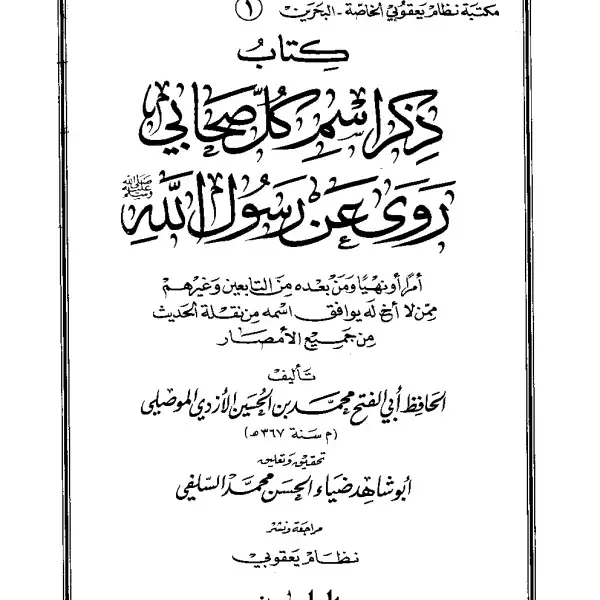 مكتبة نظام يعقوبي الخاصة - البحرين ١
كتاب
ذِكْر اسْمِ كُلِّ صَحَابِي
رَوَى عَنْ رَسُولِ اللهِ ﷺ
أمرًا أو نهيًا ومن بعده من التابعين وغيرهم
ممن لا أخ له يوافق اسمه من نقلة الحديث
من جميع الأمصار
تأليف
الحافظ أبي الفتح محمد بن الحسين الأزدي الموصلي
(م سنة ٣٦٧ هـ)
تحقيق وتعليق
أبو شاهد ضياء الحسن محمد السلفي
مراجعة ونشر
نظام يعقوبي